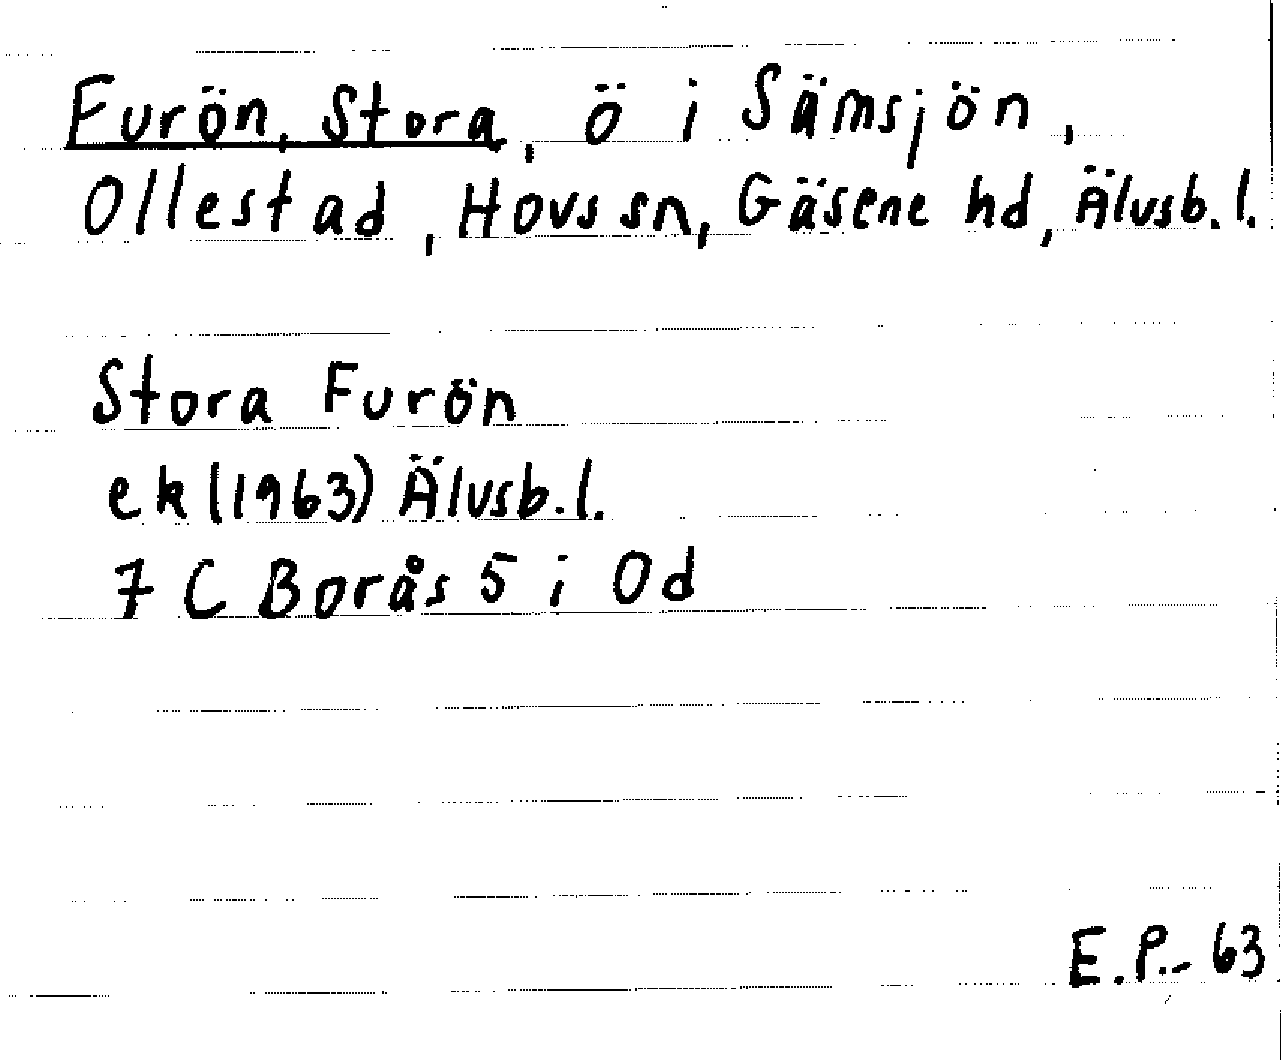 Furön, Stora, ö i Sämsjön,
Ollestad, Hovs sn, Gäsene hd, Älvsb. l.
Stora Furön
ek (1963) Älvsb. l.
7 C Borås 5 i Od
E.P.- 63